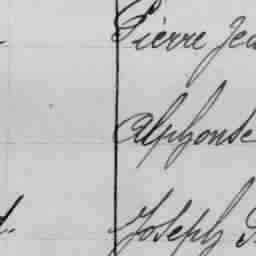 Pierre Jea
Alphonse
Joseph